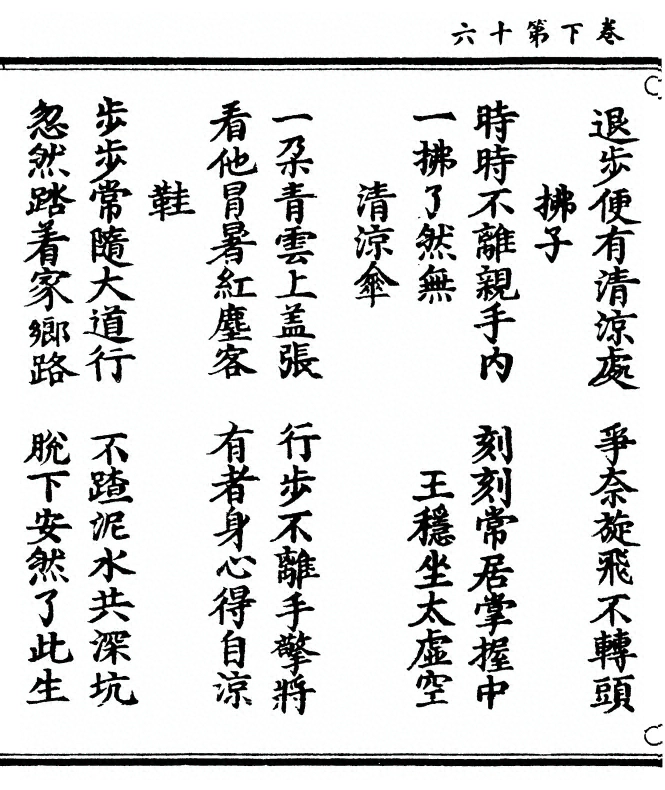 卷下第十六
退步便有清涼處　爭奈旋飛不轉頭
拂子
時時不離親手內　刻刻常居掌握中
一拂了然無　王穩坐太虛空
清涼傘
一朶青雲上盖張　行步不離手擎將
看他冒暑紅塵客　有者身心得自涼
鞋
步步常隨大道行　不蹅泥水共深坑
忽然踏着家鄉路　脫下安然了此生